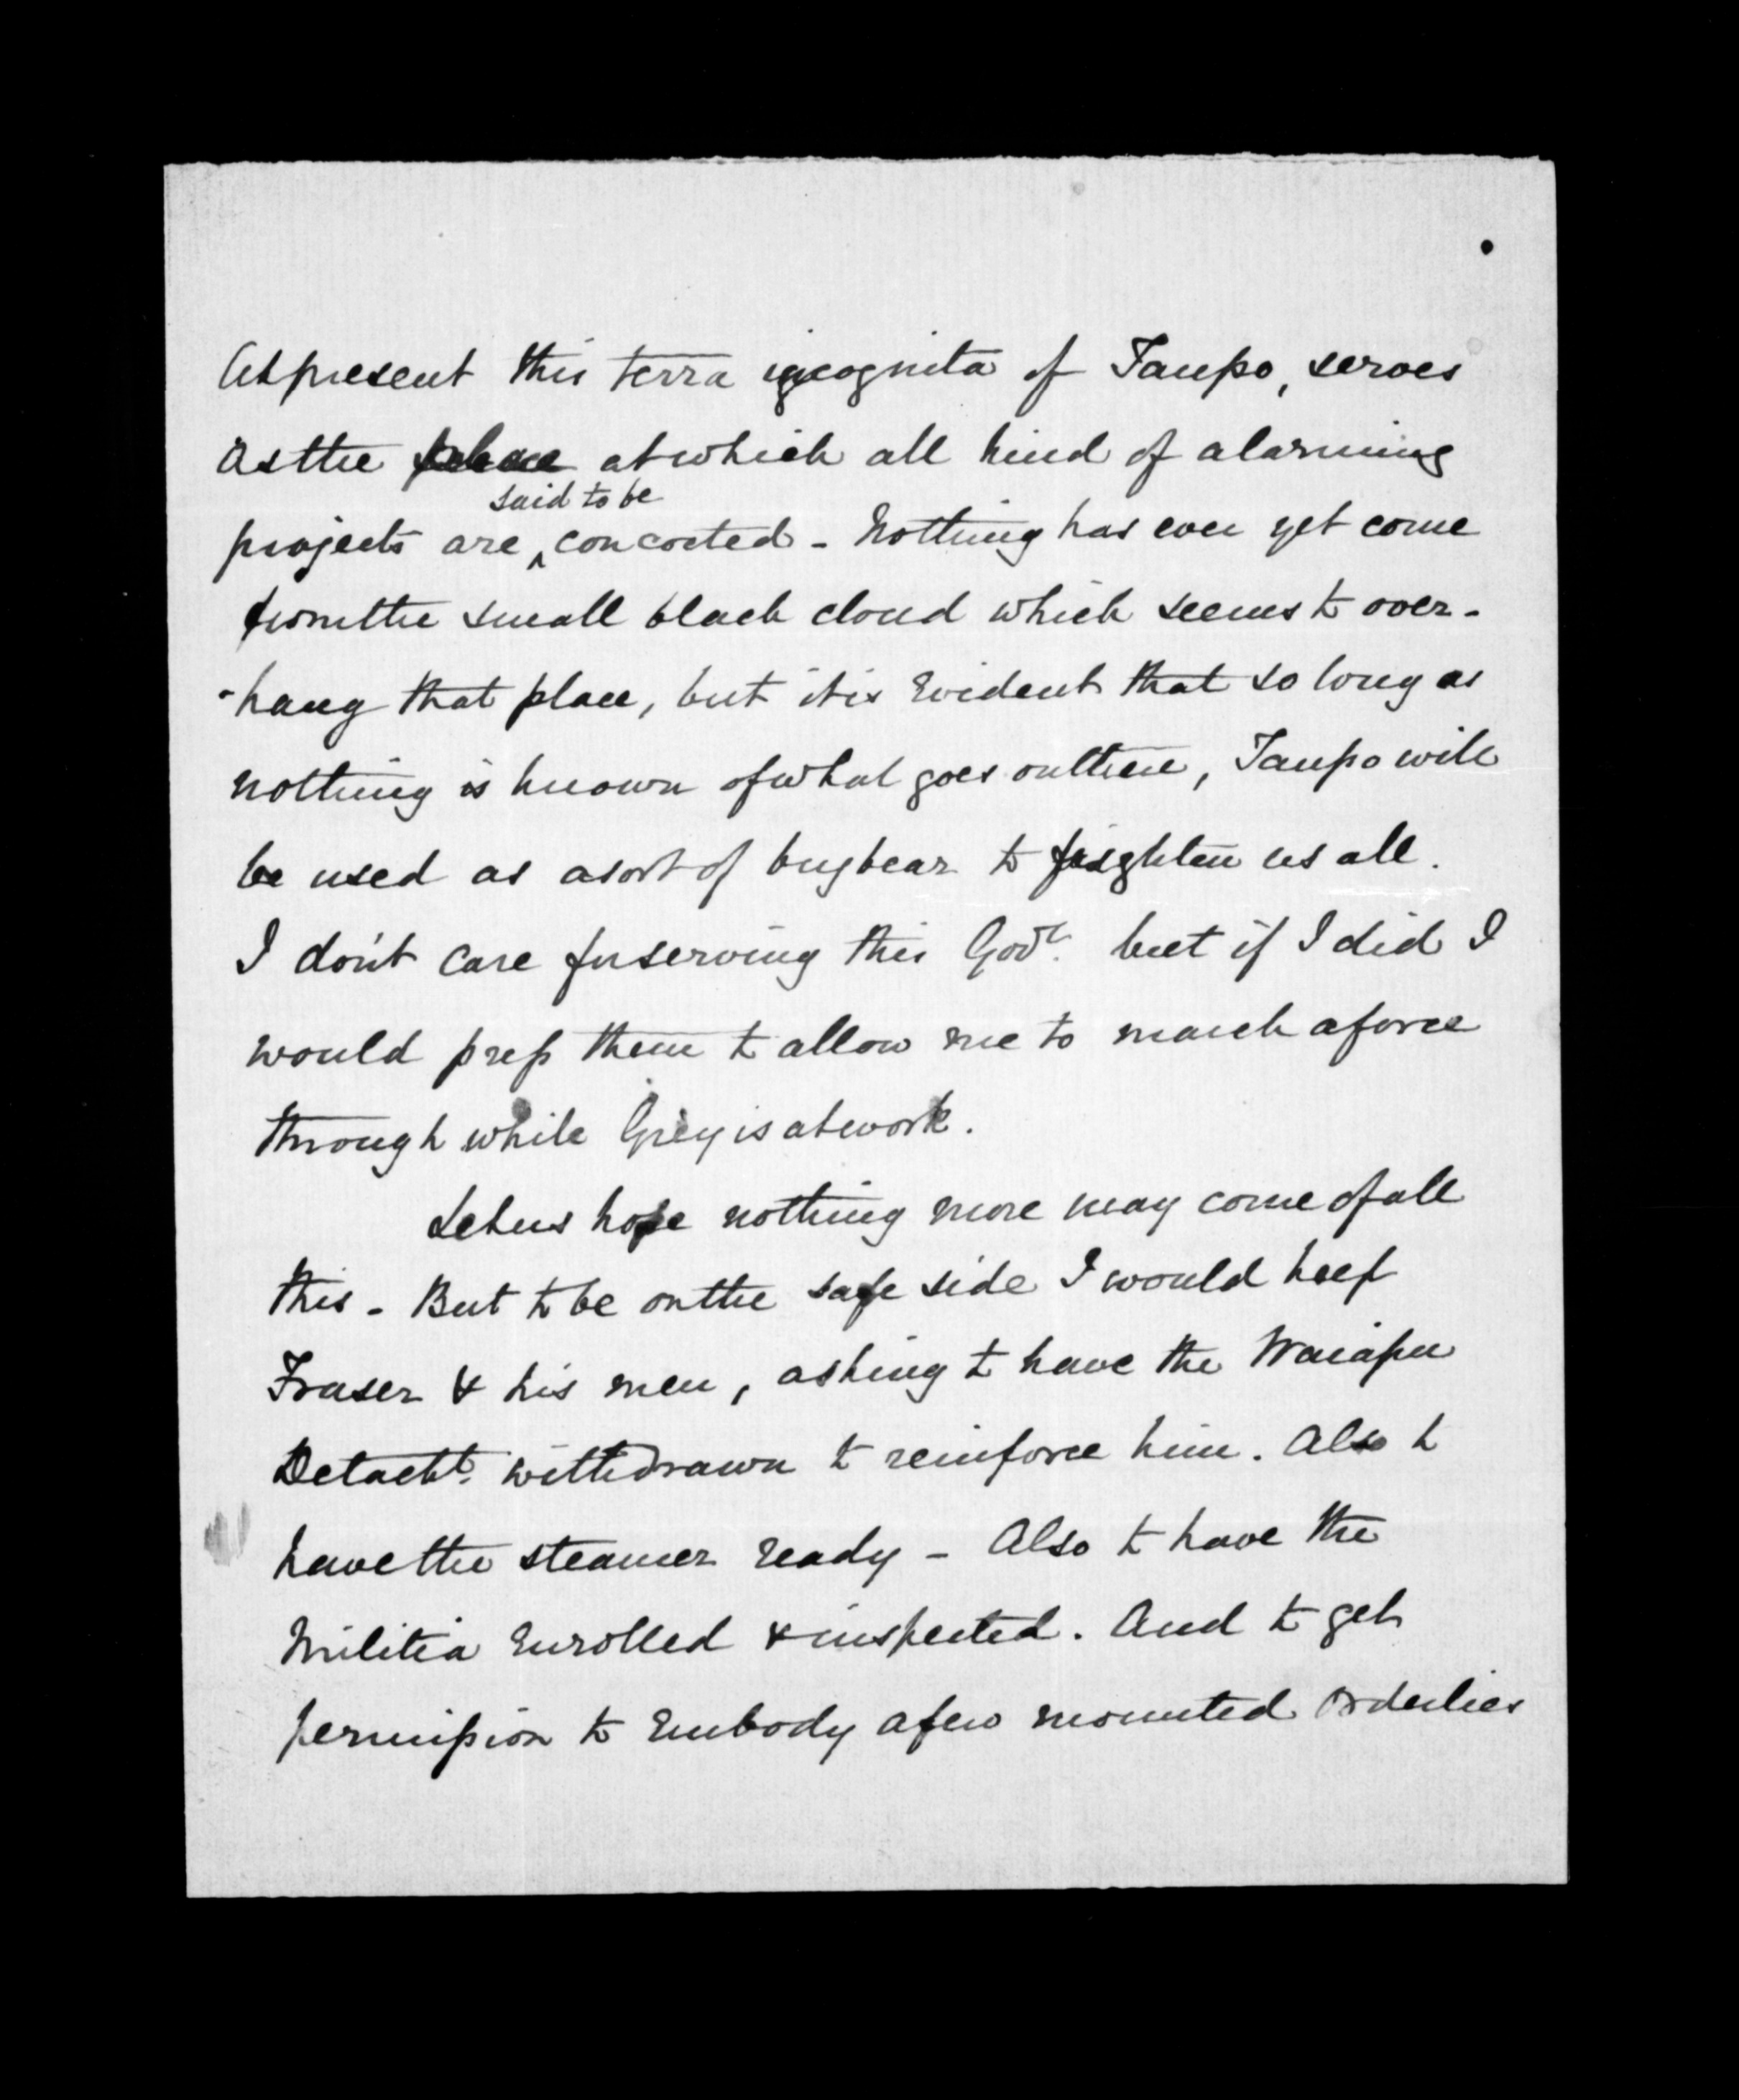 At present this terra incognita of Taupo, serves
as the place at which all kind of alarming
said to be
projects are ^ concocted - Nothing has ever yet come
from the small black cloud which seems to over-
-hang that place, but it is evident that so long as
nothing is known of what goes on there, Taupo will
be used as a sort of bugbear to frighten us all.
I don't care for serving this Govt. but if I did I
would press them to allow me to march a force
through while Grey is at work.
Let us hope nothing more may come of all
this - But to be on the safe side I would keep
Fraser & his men, asking to have the Waiapu
Detacht. withdrawn to reinforce him. Also to
have the steamer ready - Also to have the
Militia enrolled & inspected. And to get
permission to embody a few mounted orderlies